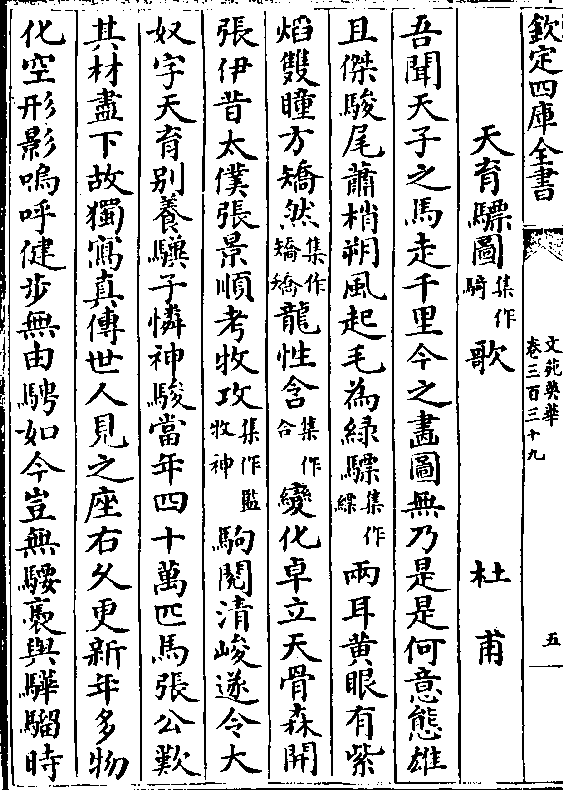 欽定四庫全書
文苑英華
卷三百三十九
五
天育驃圖集作騎歌 杜甫
吾聞天子之馬走千里今之畫圖無乃是是何意態雄
且傑駿尾蕭梢朔風起毛為緑驃集作縹兩耳黃眼有紫
焰雙瞳方矯然集作矯矯龍性含集作合變化卓立天骨森開
張伊昔太僕張景順考牧攻集作監牧神駒閱清峻遂令大
奴字天育别養驥子憐神駿當年四十萬匹馬張公歎
其材盡下故獨寫真傳世人見之座右久更新年多物
化空形影嗚呼健步無由騁如今豈無騕褭與驊騮時